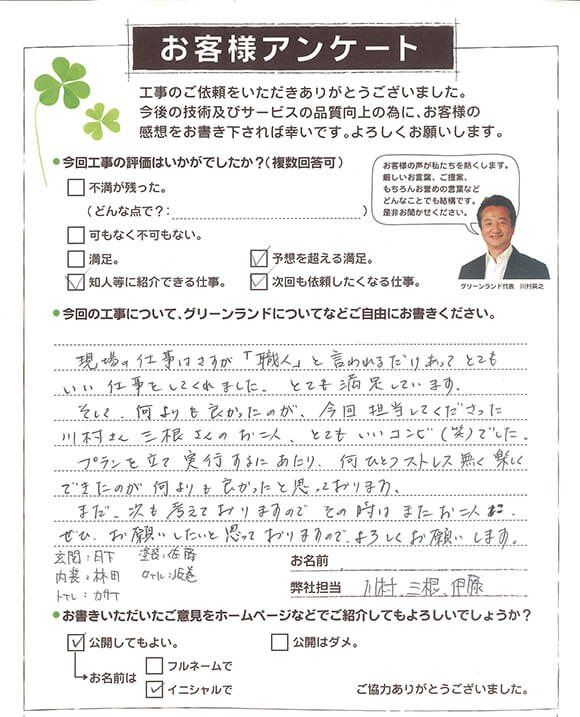 お客様アンケート
工事のご依頼をいただきありがとうございました。
今後の技術及びサービスの品質向上の為に、お客様の
感想をお書き下されば幸いです。よろしくお願いします。
今回工事の評価はいかがでしたか？（複数回答可）
不満が残った。
（どんな点で？：　）
可もなく不可もない。
満足。
予想を超える満足。
知人等に紹介できる仕事。
次回も依頼したくなる仕事。
お客様の声が私たちを熱くします。
厳しいお言葉、ご提案、
もちろんお誉めの言葉など
どんなことでも結構です。
是非お聞かせください。
グリーンランド代表　川村英之
今回の工事について、グリーンランドについてなどご自由にお書きください。
現場の仕事はさすが「職人」と言われるだけあってとても
いい仕事をしてくれました。とても満足しています。
そして、何よりも良かったのが、今回担当してくださった
川村さん三根さんのお二人、とてもいいコンビ（笑）でした。
プランを立て実行するにあたり、何ひとつストレス無く楽しく
できたのが何よりも良かったと思っております。
まだ、次も考えておりますのでその時はまたお二人に、
ぜひ、お願いしたいと思っておりますので、よろしくお願いします。
玄関：日下　塗装：佐藤
内装：林田　タイル：
トイレ：カサイ
お名前
弊社担当　川村、三根、伊藤
お書きいただいたご意見をホームページなどでご紹介してもよろしいでしょうか？
公開してもよい。
公開はダメ。
お名前は
フルネームで
イニシャルで
ご協力ありがとうございました。